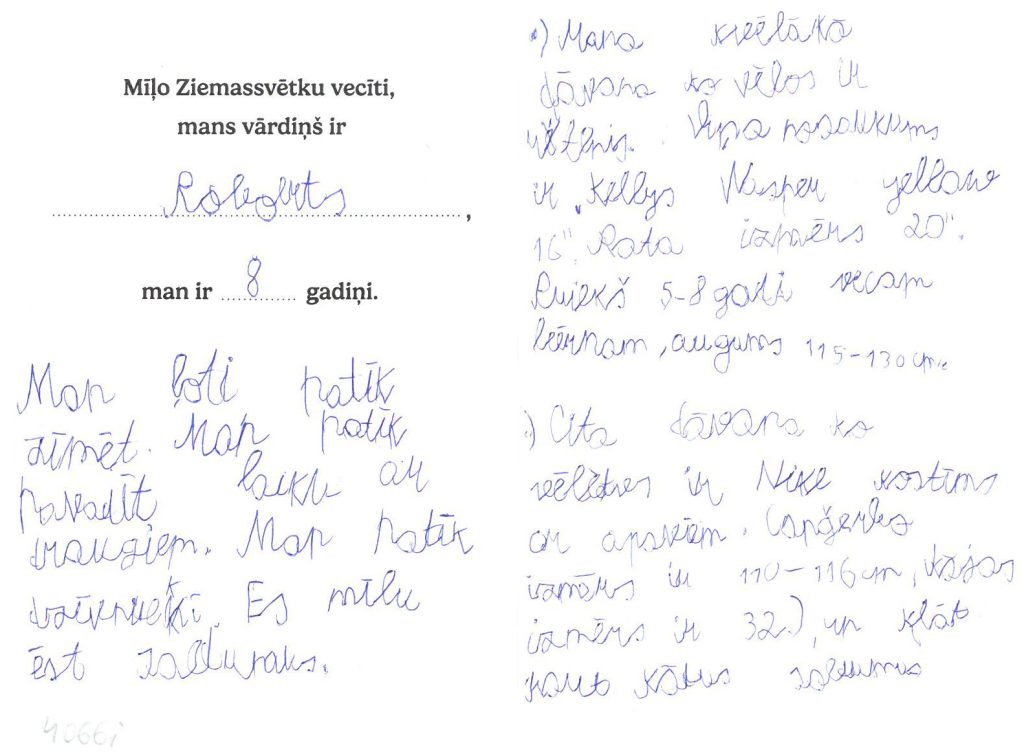 Mīļo Ziemassvētku vecīti,
mans vārdiņš ir
Roberts,
man ir 8 gadiņi.
Man ļoti patīk
zīmēt. Man patīk
pavadīt laiku ar
draugiem. Man patīk
dzīvnieki. Es mīlu
ēst saldumus.
4066i
•) Mana
dāvana ko vēlos ir
nosaukums
ir „Kellys Wasper yellow
16". Rata izmērs 20".
5-8 gadi vecam
bērnam, augums 115-130 cm.
•) Cita dāvana ko
vēlētos ir Nike kostīms
ar apaviem. (apģerba
izmērs ir 110-116 cm, kājas
izmērs ir 32.), un klāt
kaut kādus saldumus